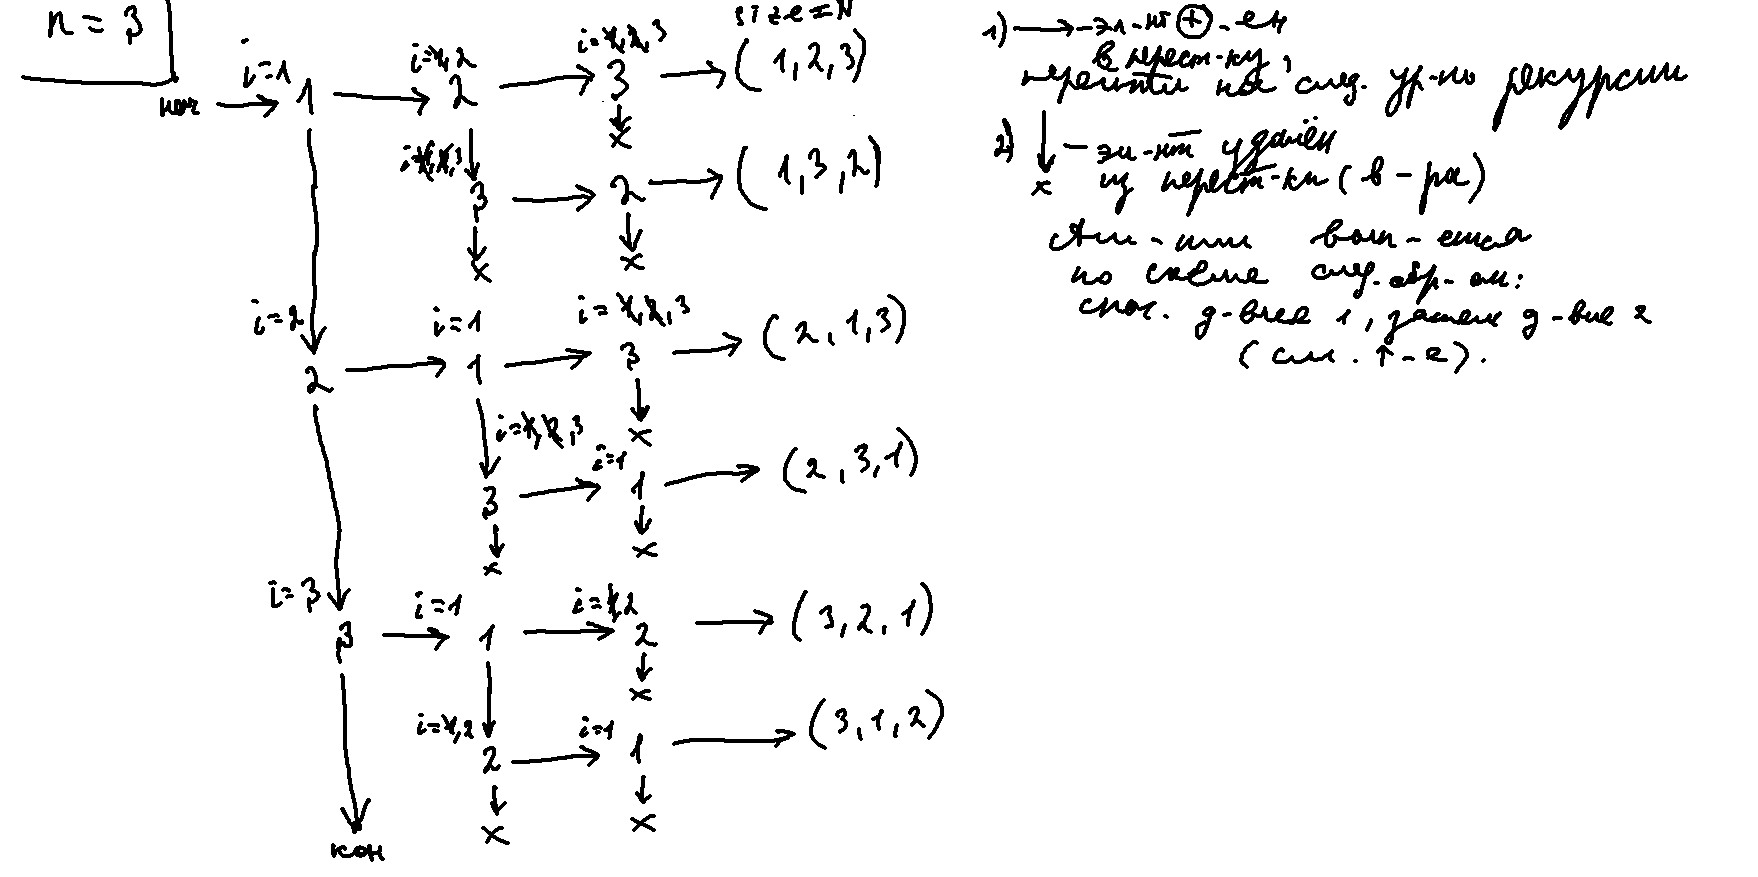 n = 3
size = N
нач i=1 1 i=1,2 2 i=1,2,3 3 (1,2,3)
x
i=1,2,3 3 2 (1,3,2)
x x
i=2 2 i=1 1 i=1,2,3 3 (2,1,3)
x
i=1,2,3 3 i=1 1 (2,3,1)
x x
i=3 3 i=1 1 i=1,2 2 (3,2,1)
x
i=1,2 2 i=1 1 (3,1,2)
x x
кон
1) → - эл-нт ⊕-ен
в перест-ку,
перейти на след. ур-нь рекурсии
2) ↓ - эл-нт удалён
x из перест-ки (в-ра)
вып-ется
по схеме след. обр-ом:
снач. д-вие 1, затем д-вие 2
(см. ↑-е).